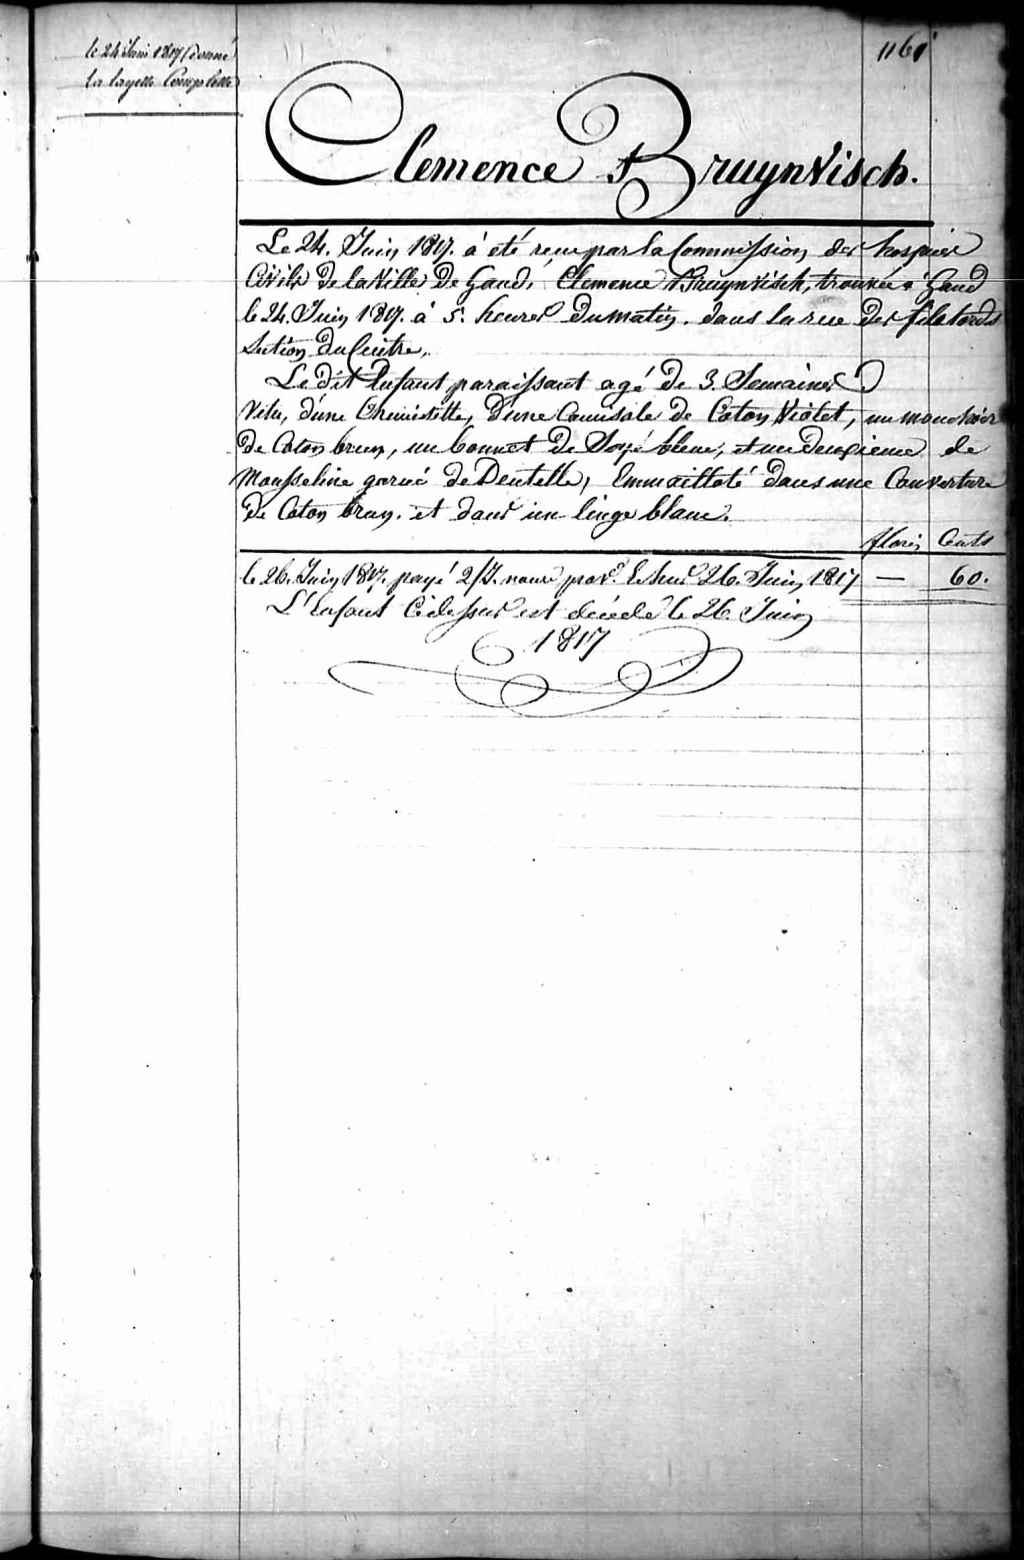 le 24 Juin 1817 donné
la layette Complette
1161
Clemence Bruynvisch.
Le 24. Juin 1817. à eté recu par la Commission des hospices
Civils De la Ville De Gand, Clemence Bruynvisch, trouvée à Gand
le 24. Juin 1817. à 5. heures Du matin. dans la rue Des
Section Du Centre.
Le dit Enfant paraissant agé de 3. Semaines
Vetu, d'une Chemisette, d'une Camisole de Coton Violet, un mouchoir
De Coton brun, un bonnet De Soye bleue, et un deuxieme de
Mousseline garnie de Dentelle, Emmailloté dans une Couverture
De Coton brun. et dans un linge blanc.
florin Cents
le 26. Juin 1817. payé 2/J. nour prov. 26. Juin 1817 — 60.
L'Enfant Cidessus est décédé le 26. Juin
1817